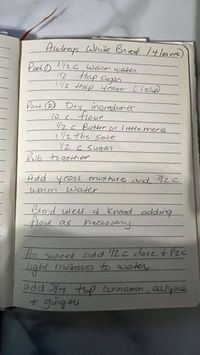 Audreys White Bread (4 loaves)
Part ① 1 1/2 c warm water
1/2 tbsp sugar
1 1/2 tbsp yeast (1 slip)
Part ② Dry ingredients
10 c flour
1/2 c Butter or little more
1 1/2 tbs salt
1/2 c sugar
Rub together
Add yeast mixture and 3 1/2 c
warm water
Blend well & knead adding
flour as necessary
for sweet add 1/2 c dark + 1/2 c
light molasses to water
add 3/4 tsp cinnamon, allspice
+ ginger